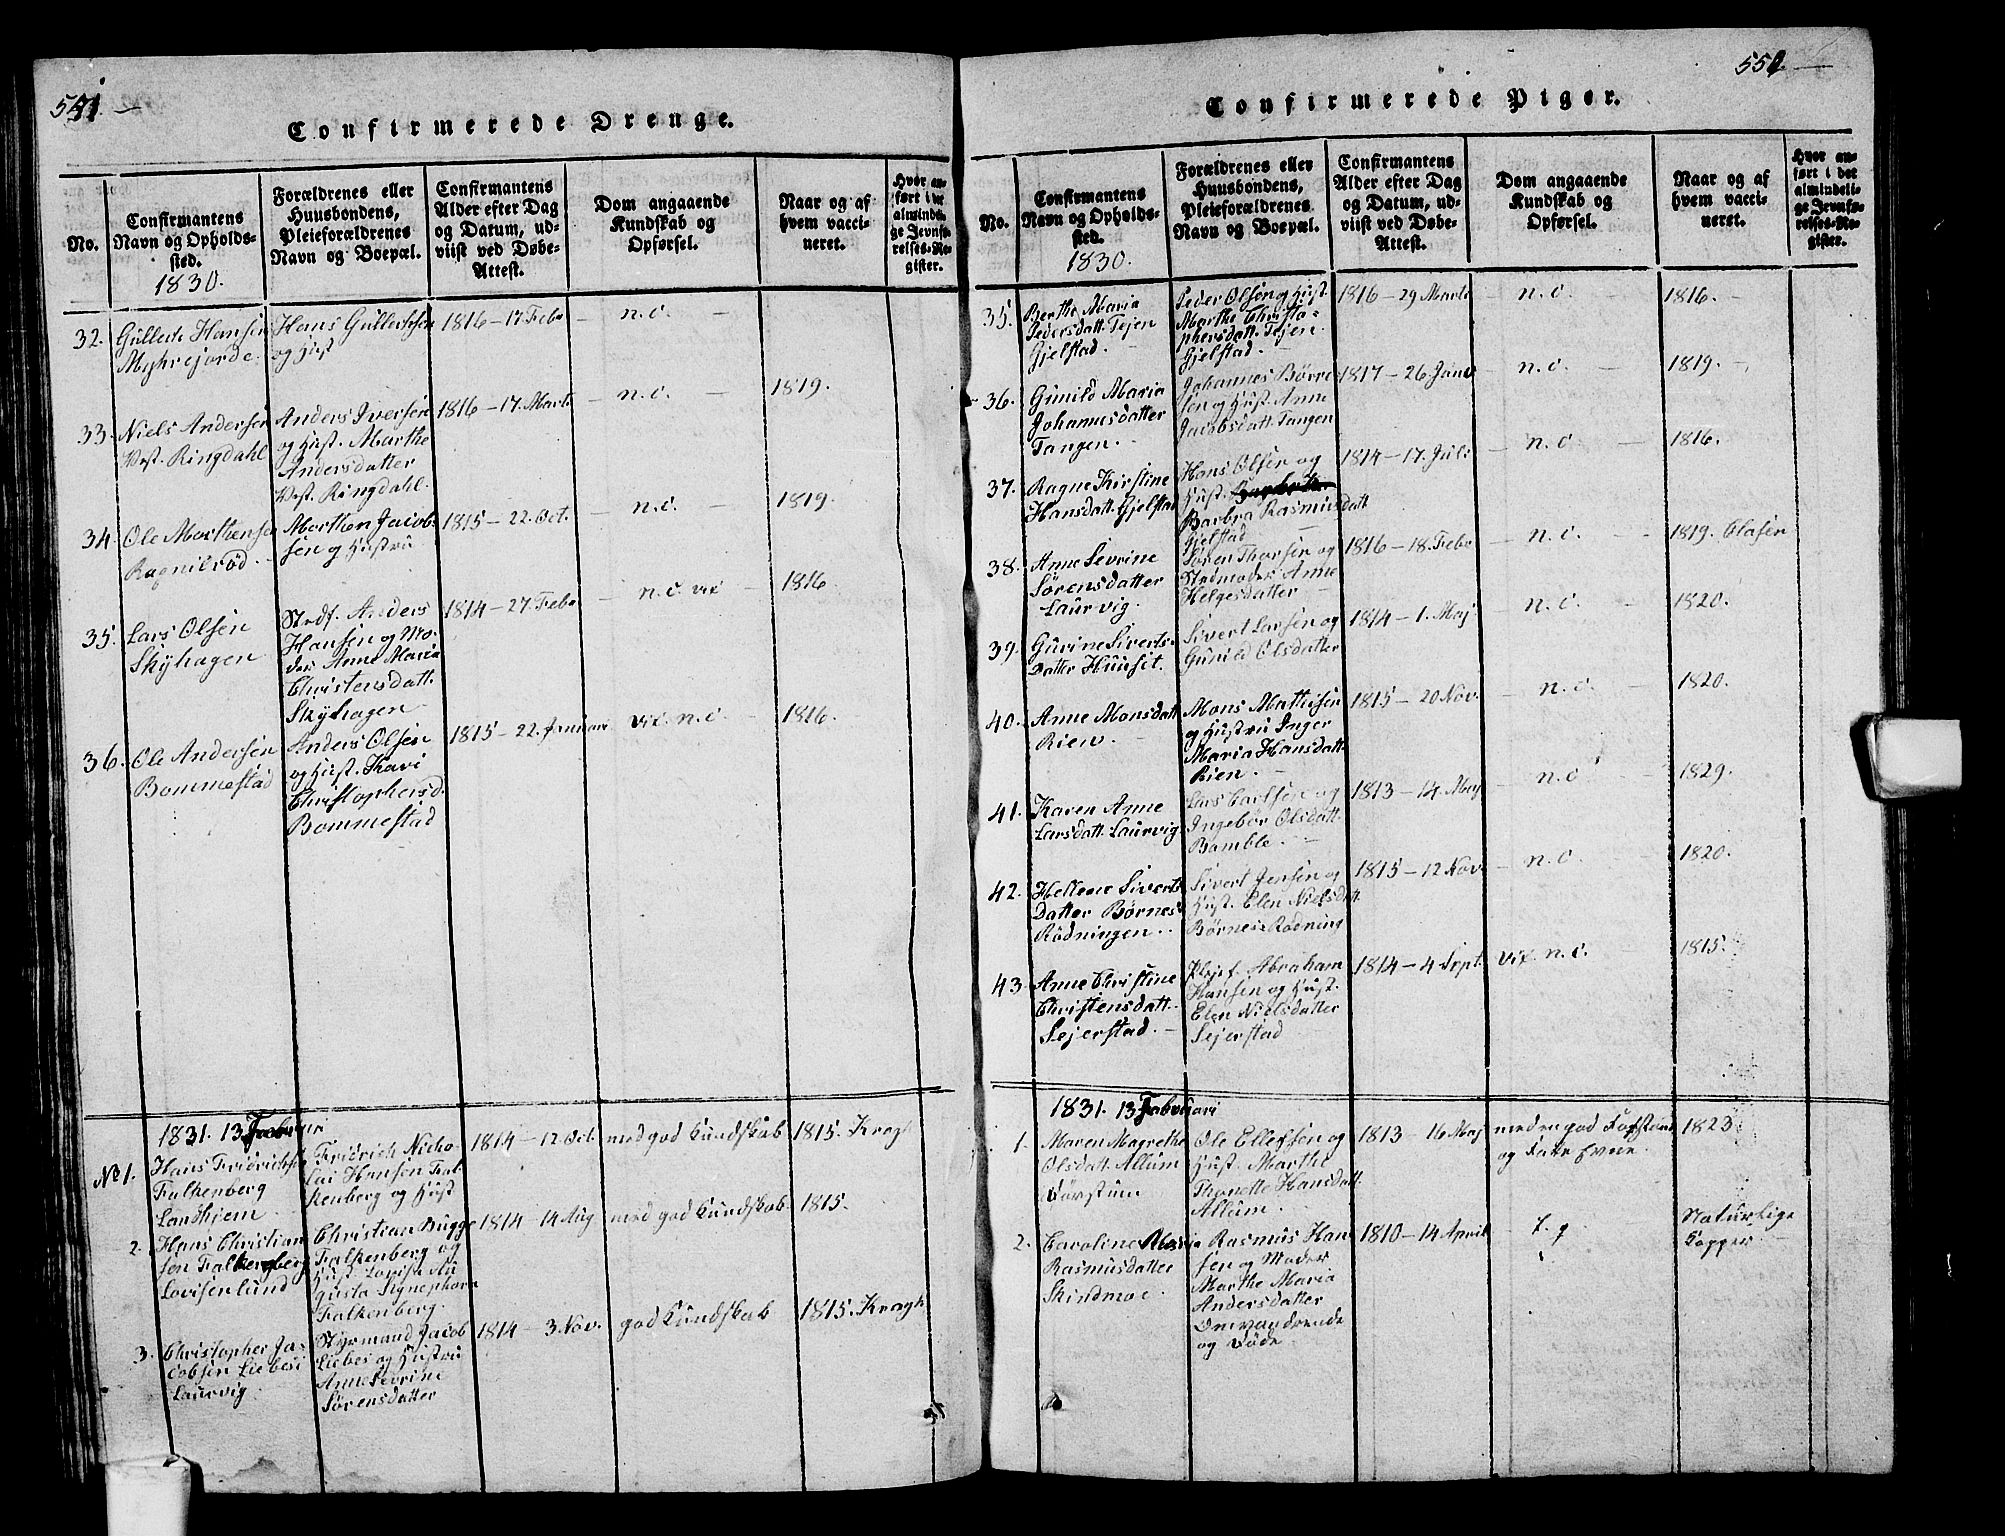 551.
Confirmerede Drenge.
No.
Confirmantens
Navn og Opholds-
sted.
1830.
Forældrenes eller
Huusbondens,
Pleieforældrenes
Navn og Boepæl.
Confirmantens
Alder efter Dag
og Datum, ud-
viist ved Døbe-
Attest.
Dom angaaende
Kundskab og
Opførsel.
Naar og af
hvem vacci-
neret.
Hvor an-
ført i det
almindeli-
ge Jevnfø-
relses-Re-
gister.
32.
Gullerte Hansen
Myhrejorde.
Hans Gullertsen
og Hust
1816 - 17. Febr
n.c.
33.
Niels Andersen
Vest. Ringdahl
Anders Iversen
og Hust. Marthe
Andersdatter
Vest. Ringdahl.
1816 - 17. Marts
n.c.
1819.
34
Ole Marthensen
Ragnilröd.
Marthen Jacob-
sen og Hustru
1815 - 22. Oct.
n.c.
1819.
35.
Lars Olsen
Skÿhagen
Stedf. Anders
Hansen og Mo-
der Anne Maria
Christensdatt.
Skÿhagen
1814 - 27. Febr
n.c. vix
1816
36.
Ole Andersen
Bommestad
Anders Olsen
og Hust. Kari
Christophersd.
Bommestad
1815 - 22. Januari
vix. n.c.
1816.
1831. 13 Februari
No 1.
Hans Fridrichsen
Falkenberg
Landhjem
Fridrich Nicho-
lai Hansen Fal-
kenberg og Hust
1814 - 12 Oct.
med god Kundskab
1815. Krag
2.
Hans Christian
sen Falkenberg
Lovisenlund
Christian Bugge
Falkenberg og
Hust. Lovise Au
gusta Signephora
Falkenberg.
1814 - 14 Aug
med god Kundskab
1815.
3.
Christopher Ja-
cobsen Liebesi
Laurvig
Styrmand Jacob
Liebes og Hustru
Anne Sevrine
Sörensdatter
1814 - 3. Nov.
god Kundskab
1815. Kragh
552.
Confirmerede Piger.
No.
Confirmantens
Navn og Opholds-
sted.
1830.
Forældrenes eller
Huusbondens,
Pleieforældrenes
Navn og Boepæl.
Confirmantens
Alder efter Dag
og Datum, ud-
viist ved Døbe-
Attest.
Dom angaaende
Kundskab og
Opførsel.
Naar og af
hvem vacci-
neret.
Hvor an-
ført i det
almindeli-
ge Jevnfø-
relses-Re-
gister.
35.
Berthe Maria
Pedersdatt. Tejen
Gjelstad.
Peder Olsen og Hust.
Marthe Christo-
phersdatt. Tejen.
Gjelstad.
1816 - 29 Marts
n.c.
1816.
36.
Gunild Maria
Johannesdatter
Tangen.
Johannes Börre-
sen og Hust. Anne
Jacobsdatt. Tangen
1817 - 26. Janv
n.c.
1819.
37.
Ragne Kirstine
Hansdatt. Gjelstad
Hans Olsen og
Hust.
Barbra Rasmusdatt
Gjelstad
1814 - 17. Juli
n.c.
1816.
38.
Anne Sevrine
Sörensdatter
Laurvig.
Sören Thorsen og
Stedmoder Anne
Helgesdatter
1816 - 18. Febr
n.c.
1819. Clasen
39.
Gurine Siverts-
datter Huuset.
Sivert Larsen og
Gunild Olsdatter
1814 - 1. Maj
n.c.
1820.
40.
Anne Monsdatt
Rien.
Mons Mathisen
og Hustru Inger
Maria Hansdatt.
Rien.
1815 - 20 Nov.
n.c.
1820.
41.
Karen Anne
Larsdatt. Laurvig.
Lars Carlsen og
Ingebör Olsdatt.
Bamble.
1813 - 14. Maj
n.c
1829.
42.
Hellene Siverts-
datter Börnes-
Rödningen.
Sivert Jensen og
Hust. Elen Nielsdatt.
Börnes-Rödning
1815 - 12 Nov.
n.c.
1820.
43.
Anne Christine
Christensdatt.
Sejerstad.
Plejef. Abraham
Hansen og Hust.
Elen Nielsdatter
Sejerstad
1814 - 4 Sept.
vix. n.c.
1815.
1831. 13 Februari
1.
Maren Magrethe
Olsdatt. Allum
Ole Ellefsen og
Hust. Marthe
Thonette Hansdatt.
Allum.
1813 - 16 Maj
med en god Forstand
og
1823.
2.
Caroline Maria
Rasmusdatter
Skindmoe.
Rasmus Han-
sen og Moder
Marthe Maria
Andersdatter
Omvandrende
og Döde.
1810 - 14 April
Naturlige
Kopper.